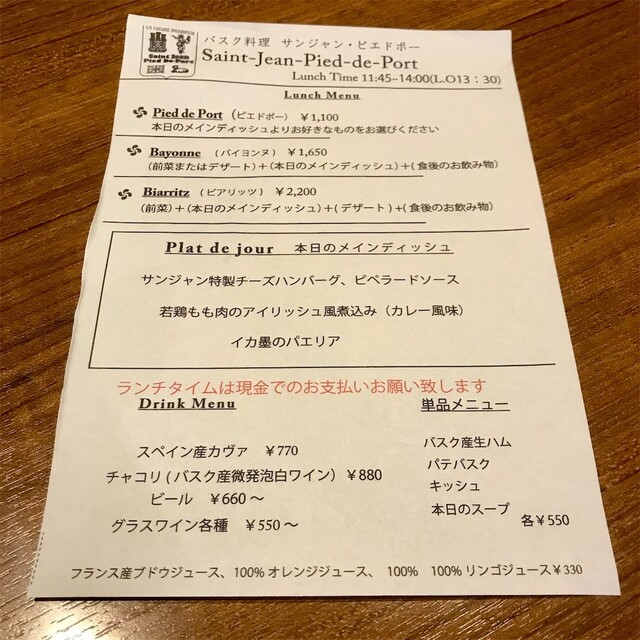 Saint Jean
Pied De Port
バスク料理 サンジャン・ピエドポー
Saint-Jean-Pied-de-Port
Lunch Time 11:45~14:00(L.O13:30)
Lunch Menu
Pied de Port (ピエドポー) ¥1,100
本日のメインディッシュよりお好きなものをお選びください
Bayonne (バイヨンヌ) ¥1,650
(前菜またはデザート)+(本日のメインディッシュ)+(食後のお飲み物)
Biarritz (ビアリッツ) ¥2,200
(前菜)+(本日のメインディッシュ)+(デザート)+(食後のお飲み物)
Plat de jour 本日のメインディッシュ
サンジャン特製チーズハンバーグ、ピペラードソース
若鶏もも肉のアイリッシュ風煮込み(カレー風味)
イカ墨のパエリア
ランチタイムは現金でのお支払いお願い致します
Drink Menu
スペイン産カヴァ ¥770
チャコリ(バスク産微発泡白ワイン) ¥880
ビール ¥660~
グラスワイン各種 ¥550~
単品メニュー
バスク産生ハム
パテバスク
キッシュ
本日のスープ
各¥550
フランス産ブドウジュース、100%オレンジジュース、 100% 100%リンゴジュース¥330